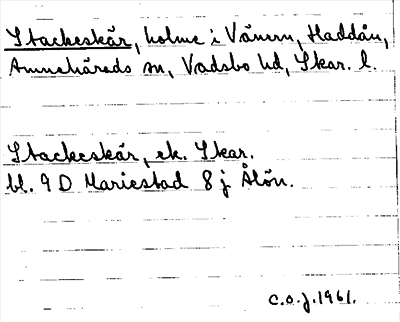 Stackeskär, holme i Vänern, Haddån,
Amnehärads sn, Vadsbo hd, Skar. l.
Stackeskär, ek. Skar.
bl. 9 D Mariestad 8 j Ålön.
C.O.J. 1961.